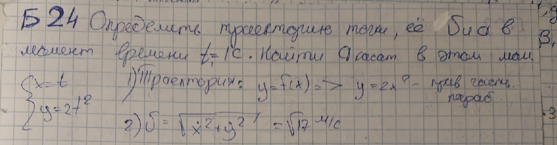 Б24 Определить траекторию точки, её υ и a в
момент времени t₁=1с. Найти a касат. в этом мом.
{x=t
y=2t²
1) Траектория: y=f(x) => y=2x² - прав. часть
параб.
2) υ = √ẋ²+ẏ² = √17 м/с